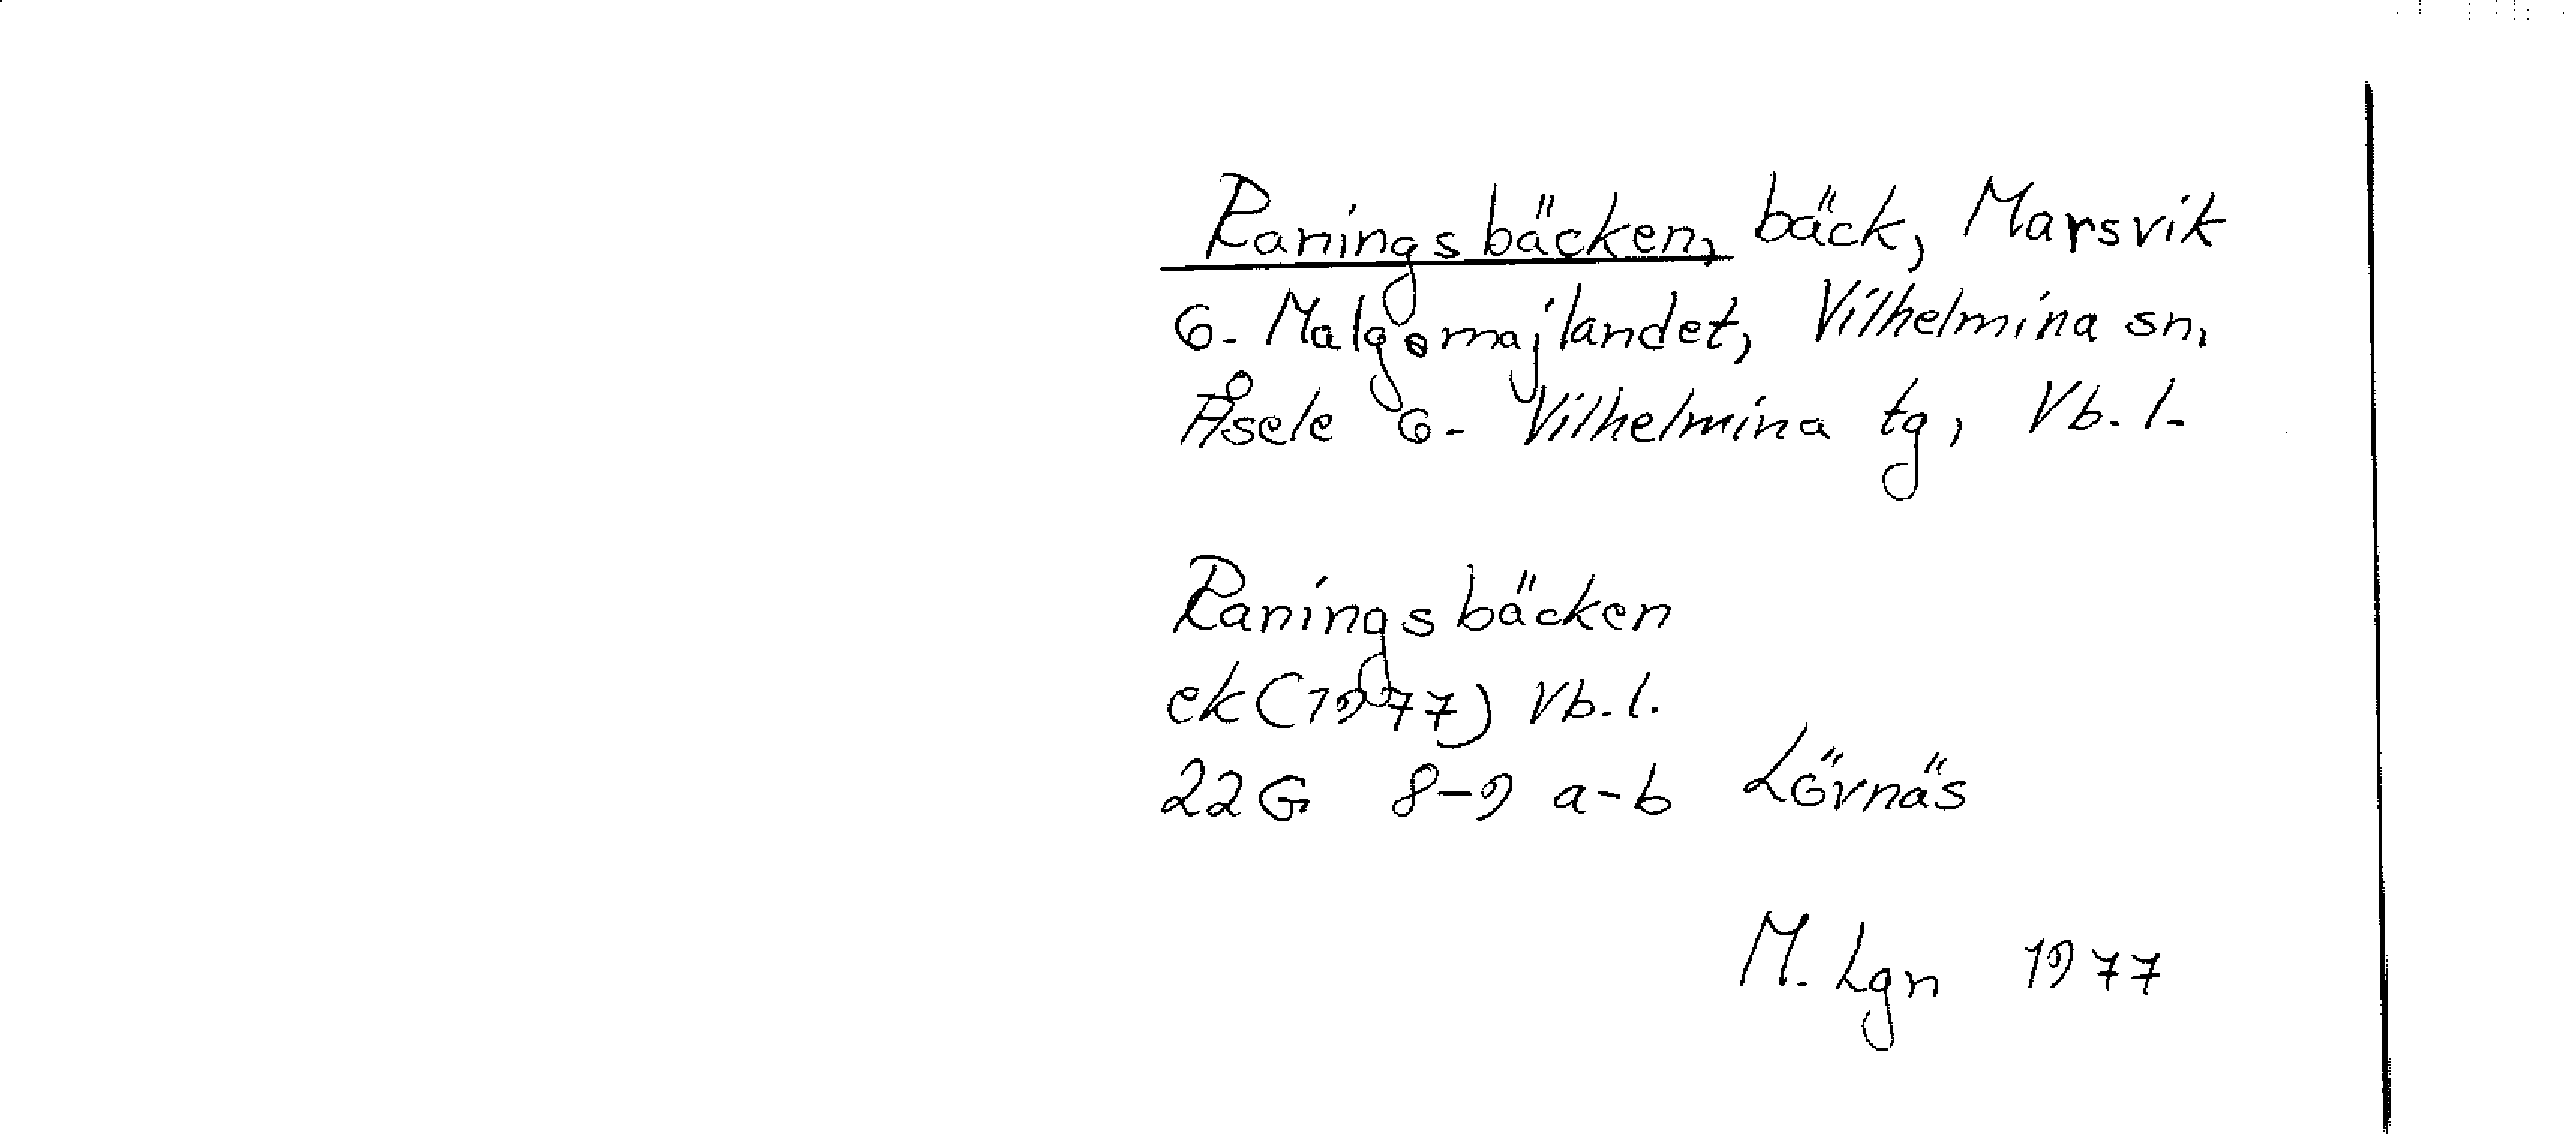 Raningsbäcken, bäck, Marsvik
o. Malgomajlandet, Vilhelmina sn,
Åsele o. Vilhelmina tg, Vb. l.
Raningsbäcken
ek (1977) Vb. l.
22G 8-9 a-b Lövnäs
M. Lgn 1977